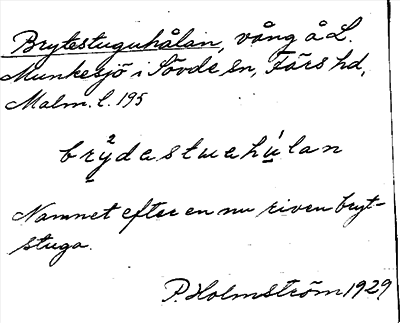 Brytestuguhålan, vång å L.
Munkesjö i Sövde sn, Färs hd,
Malm. l. 195
brẙdastuahúlan
Namnet efter en nu riven bryt-
stuga.
P. Holmström 1929